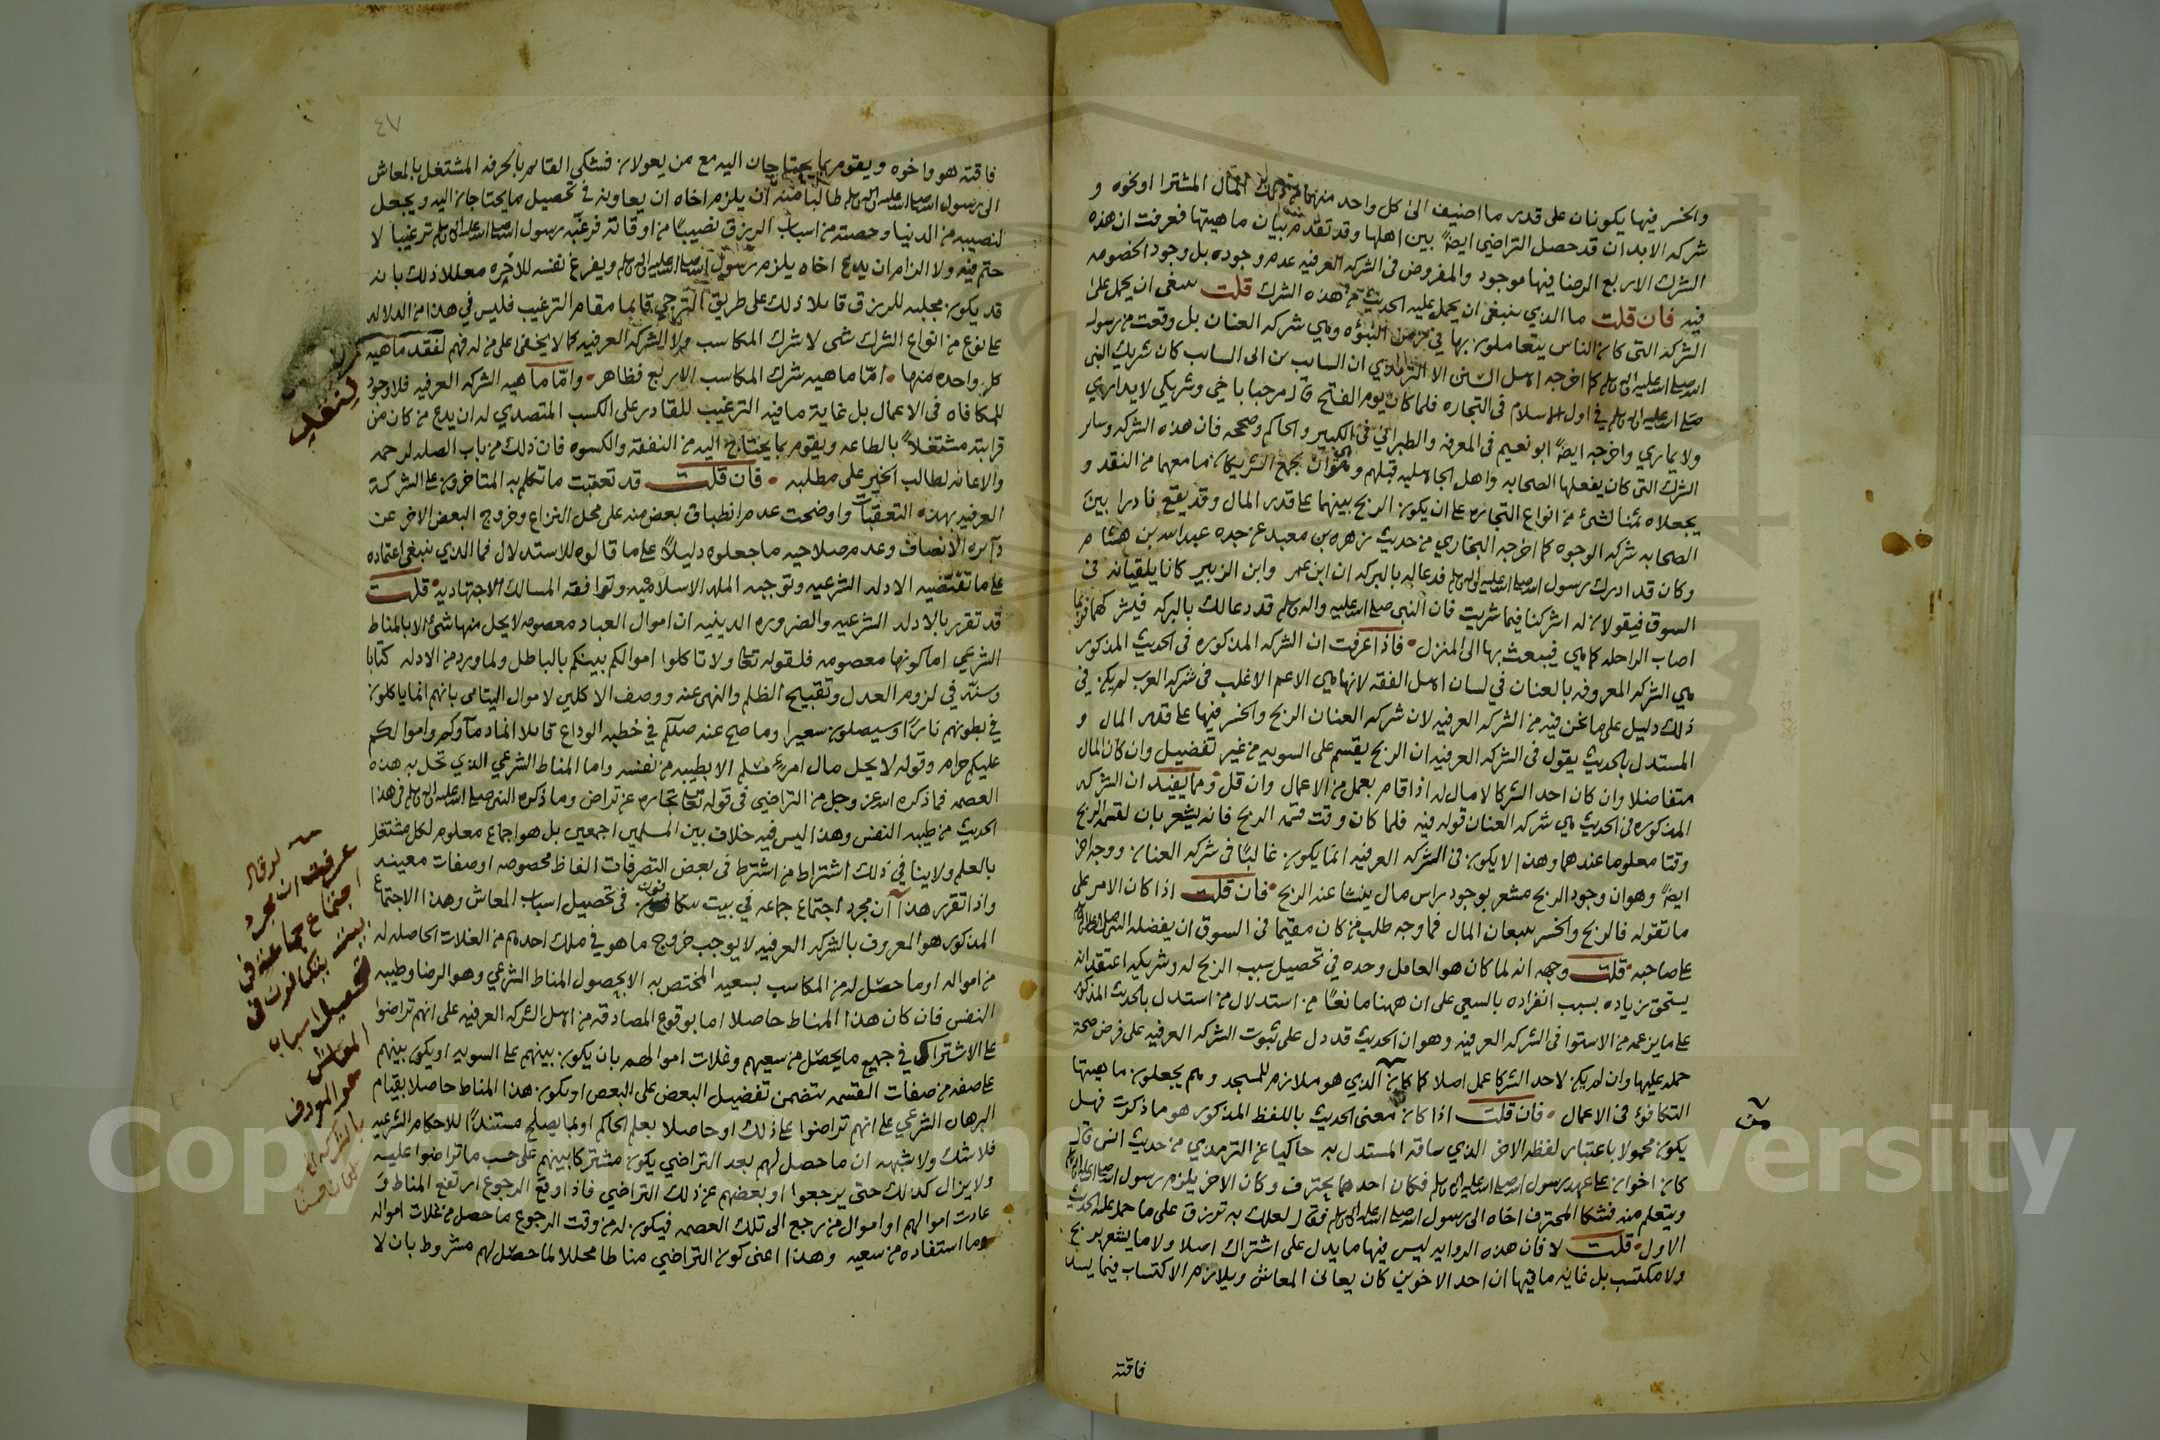 والخسر فيها يكونان على قدر ما اضيف الى كل واحد منهما من ذلك المال المشترا او نحوه و
شركه الابدان قد حصل التراضي ايضاً بين اهلها وقد تقدم بيان ماهيتها فعرفت ان هذه
الشرك الاربع الرضا فيها موجود والمفروض في الشركه العرفيه عدم وجوده بل وجود الخصومه
فيه فان قلت ما الذي ينبغي ان يحمل عليه الحديث من هذه الشرك قلت ينبغي ان يحمل على
الشركه التي كان الناس يتعاملون بها في زمن النبوه وهي شركه العنان بل وقعت من رسول
الله صلى الله عليه واله وسلم كما اخرجه اهل السنن الا الترمذي ان السايب بن ابي السايب كان شريك النبي
صلى الله عليه واله وسلم في اول الاسلام في التجاره فلما كان يوم الفتح قال مرحبا باخي وشريكي لايداري
ولا يماري واخرجه ايضاً ابو نعيم في المعرفه والطبراني في الكبير والحاكم وصححه فان هذه الشركه وساير
الشرك التي كان يفعلها الصحابه واهل الجاهليه قبلهم وهي ان يجمع الشريكان ما معهما من النقد و
يجعلاه ثمنا لشئ من انواع التجاره على ان يكون الربح بينهما على قدر المال وقد يقع نادرا بين
الصحابه شركه الوجوه كما اخرجه البخاري من حديث زهره بن معبد عن جده عبدالله بن هشام
وكان قد ادرك رسول الله صلى الله عليه واله وسلم فدعا له بالبركه ان ابن عمر وابن الزبير كانا يلقيانه في
السوق فيقولان له اشركنا فيما شريت فان النبي صلى الله عليه واله وسلم قد دعا لك بالبركه فيشركهما فربما
اصاب الراحله كما هي فيبعث بها الى المنزل فاذا عرفت ان الشركه المذكوره في الحديث المذكور
هي الشركه المعروفه بالعنان في لسان اهل الفقه لانها هي الاعم الاغلب في شركه العرب لم يكن في
ذلك دليل على ما نحن فيه من الشركه العرفيه لان شركه العنان الربح والخسر فيها على قدر المال و
المستدل بالحديث يقول في الشركه العرفيه ان الربح يقسم على السويه من غير تفضيل وان كان المال
متفاضلا وان كان احد الشركا لا مال له اذا قام بعمل من الاعمال وان قل ومما يفيد ان الشركه
المذكوره في الحديث هي شركه العنان قوله فيه فلما كان وقت قسمه الربح فانه يشعر بان لقسمه الربح
وقتا معلوما عندهما وهذا لا يكون في الشركه العرفيه انما يكون غالبًا في شركه العنان ووجه اخر
ايضاً وهو ان وجود الربح مشعر بوجود راس مال ينشا عنه الربح فان قلت اذا كان الامر على
ما تقوله فالربح والخسر يتبعان المال فما وجه طلب من كان مقيما في السوق ان يفضله النبي صلى الله عليه واله وسلم
على صاحبه قلت وجهه انه لما كان هو العامل وحده في تحصيل سبب الربح له وشريكه اعتقد انه
يستحق زياده بسبب انفراده بالسعي على ان ههنا مانعًا من استدلال من استدل بالحديث المذكور
على ما يزعمه من الاستوا في الشركه العرفيه وهو ان الحديث قد دل على ثبوت الشركه العرفيه على فرض صحة
حمله عليها وان لم يكن لاحد الشركا عمل اصلا كما كان الذي هو ملازم للمسجد وهم يجعلون ماهيتها
التكافؤ في الاعمال فان قلت اذا كان معنى الحديث باللفظ المذكور هو ما ذكرت فهل
يكون محمولا باعتبار لفظه الاخر الذي ساقه المستدل به حاكيا عن الترمذي من حديث انس قال
كان اخوان على عهد رسول الله صلى الله عليه واله وسلم فكان احدهما يحترف وكان الاخر يلزم رسول الله صلى الله عليه واله وسلم
ويتعلم منه فشكا المحترف اخاه الى رسول الله صلى الله عليه واله وسلم فقال لعلك به ترزق على ما حمل عليه الحديث
الاول قلت لا فان هذه الروايه ليس فيها ما يدل على اشتراك اصلا ولا ما يشعر بربح
ولا مكتسب بل غايه ما فيها ان احد الاخوين كان يعاني المعاش ويلازم الاكتساب فيما يسد
فاقته
من
٤٧
فاقته هو واخوه ويقوم بما يحتاجان اليه مع من يعولان فشكي القايم بالحرفه المشتغل بالمعاش
الى رسول الله صلى الله عليه واله وسلم طالبا منه ان يلزم اخاه ان يعاونه في تحصيل ما يحتاجان اليه ويجعل
لنصيبه من الدنيا وحصته من اسباب الرزق نصيبًا من اوقاته فرغّبه رسول الله صلى الله عليه واله وسلم ترغيبا لا
حتم فيه ولا الزام ان يدع اخاه يلزم رسول الله صلى الله عليه واله وسلم ويفرغ نفسه للاخره معللا ذلك بانه
قد يكون مجلبه للرزق قايلا ذلك على طريق الترجي قايما مقام الترغيب فليس في هذا من الدلاله
على نوع من انواع الشرك شئ لا شرك المكاسب ولا الشركه العرفيه كما لا يخفى على من له فهم لفقد ماهيه
كل واحده منها اما ماهيه شرك المكاسب الاربع فظاهر واما ماهيه الشركه العرفيه فلا وجود
للمكافاه في الاعمال بل غاية ما فيه الترغيب للقادر على الكسب المتصدي له ان يدع من كان من
قرابته مشتغلاً بالطاعه ويقوم بما يحتاج اليه من النفقه والكسوه فان ذلك من باب الصله لرحمه
والاعانه لطالب الخير على مطلبه فان قلت قد تعقبت ما تكلم به المتاخرون على الشركة
العرفيه بهذه التعقبات واوضحت عدم انطباق بعض منه على محل النزاع وخروج البعض الاخر عن
دايره الانصاف وعدم صلاحيه ما جعلوه دليلاً على ما قالوه للاستدلال فما الذي ينبغي اعتماده
على ما تقتضيه الادله الشرعيه وتوجبه المله الاسلاميه وتوافقه المسالك الاجتهاديه قلت
قد تقرر بالادله الشرعيه والضروره الدينيه ان اموال العباد معصومه لا يحل منها شئ الا بالمناط
الشرعي اما كونها معصومه فلقوله تعالى ولا تاكلوا اموالكم بينكم بالباطل ولما ورد من الادله كتابا
وسنّه في لزوم العدل وتقبيح الظلم والنهي عنه ووصف الاكلين لاموال اليتامى بانهم انما ياكلون
في بطونهم نارًا وسيصلون سعيرا وما صح عنه صلّم في خطبه الوداع قايلا انما دماؤكم واموالكم
عليكم حرام وقوله لا يحل مال امرئ مسلم الا بطيبه من نفسه واما المناط الشرعي الذي تحل به هذه
العصمه فما ذكره الله عز وجل من التراضي في قوله تعالى تجاره عن تراض وما ذكره النبي صلى الله عليه واله وسلم في هذا
الحديث من طيبه النفس وهذا ليس فيه خلاف بين المسلمين اجمعين بل هو اجماع معلوم لكل مشتغل
بالعلم ولا ينافي ذلك اشتراط من اشترط في بعض التصرفات الفاظ مخصوصه او صفات معينه
واذا تقرر هذا ان مجرد اجتماع جماعه في بيت يتكافون في تحصيل اسباب المعاش وهذا الاجتماع
المذكور هو المعروف بالشركه العرفيه لا يوجب خروج ما هو في ملك احدهم من الغلات الحاصله له
من امواله او ما حصّل له من المكاسب بسعيه المختص به الا بحصول المناط الشرعي وهو الرضا وطيبه
النفس فان كان هذا المناط حاصلا اما بوقوع المصادقه من اهل الشركه العرفيه على انهم تراضوا
على الاشتراك في جميع ما يحصّل من سعيهم وغلات اموالهم بان يكون بينهم على السويه او يكون بينهم
على صفه من صفات القسمه تتضمن تفضيل البعض على البعض او يكون هذا المناط حاصلا بقيام
البرهان الشرعي على انهم تراضوا على ذلك او حاصلا بعلم الحاكم او بما يصلح مستندًا للاحكام الشرعيه
فلا شك ولا شبهه ان ما حصل لهم بعد التراضي يكون مشتركا بينهم على حسب ما تراضوا عليه
ولا يزال كذلك حتى يرجعوا او بعضهم عن ذلك التراضي فاذا وقع الرجوع ارتفع المناط و
عادت اموالهم او اموال من رجع الى تلك العصمه فيكون له من وقت الرجوع ما حصل من غلات امواله
وما استفاده من سعيه وهذا اعني كون التراضي مناطا محللا لما حصّل لهم مشروط بان لا
عرفت ان مجرد
اجتماع جماعة في
بيت يتكافون في
تحصيل اسباب
المعاش
هو المعروف
بالشركه
Copy King Saud University